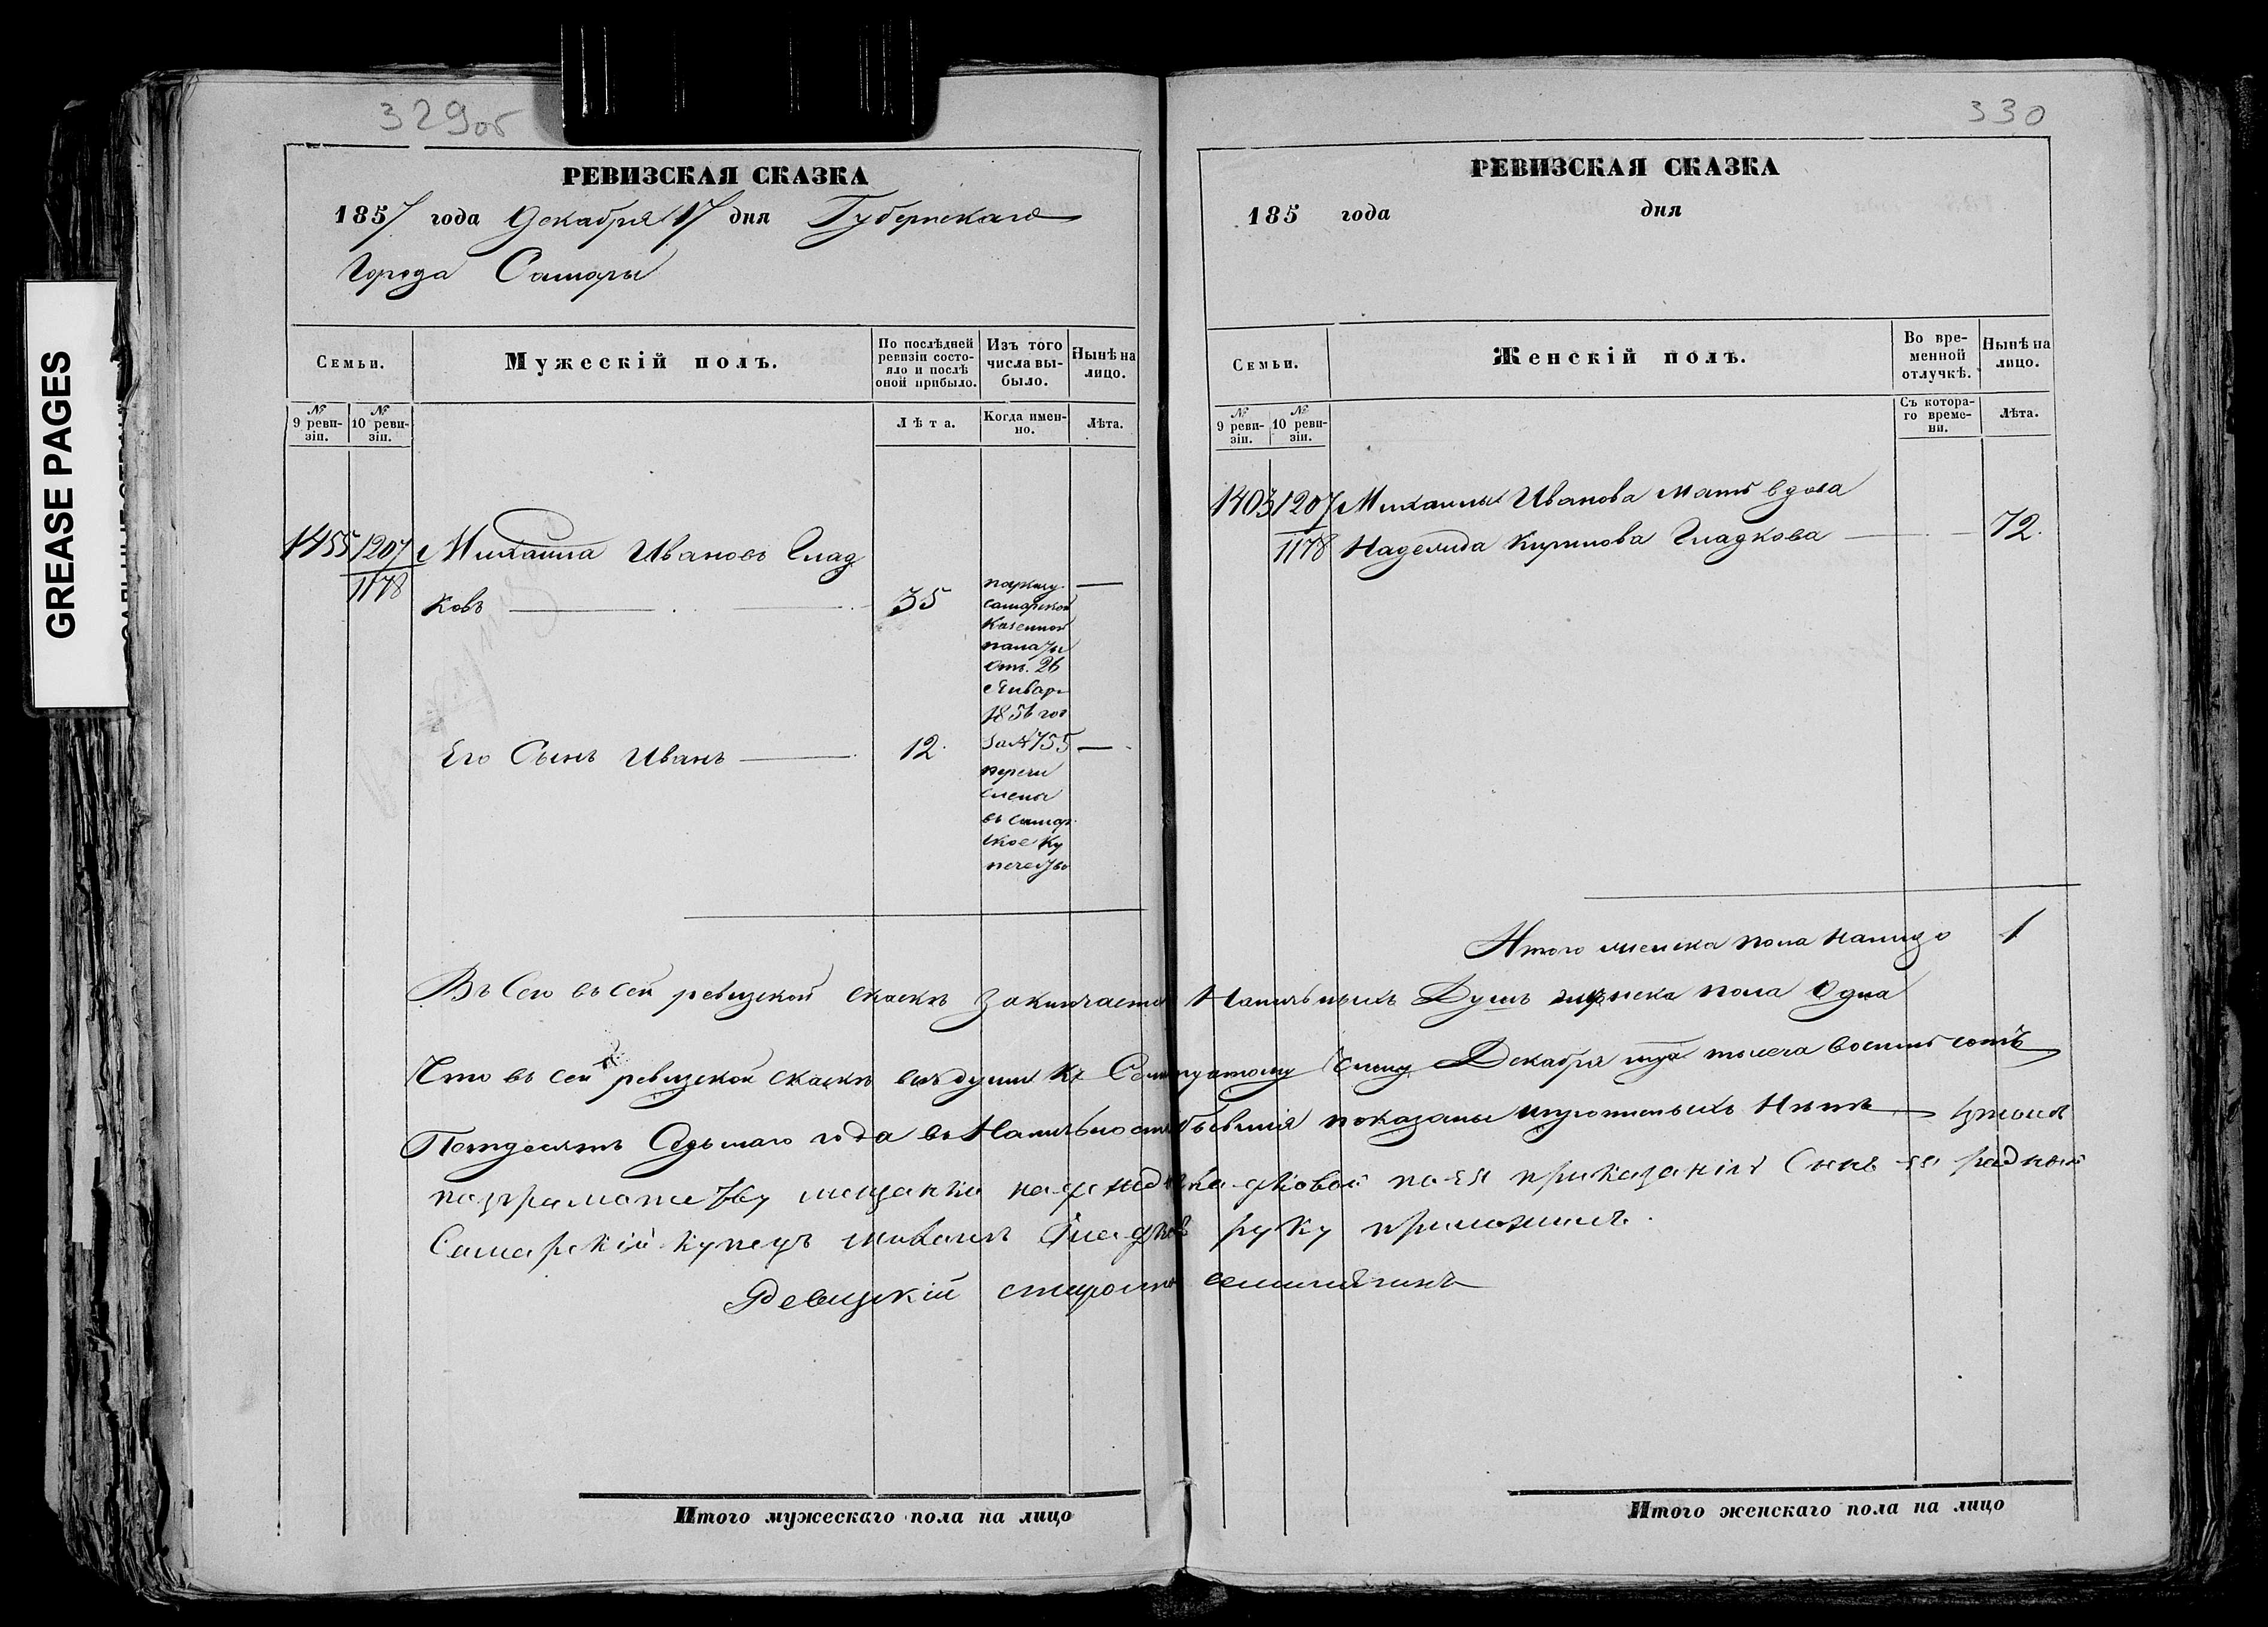 329об
РЕВИЗСКАЯ СКАЗКА
1857 года Декабря 17 дня Губернскаго
Города Самары
Семьи.
Мужескій полъ.
По послѣдней ревизіи состояло и послѣ оной прибыло.
Изъ того числа выбыло.
Нынѣ на лицо.
№ 9 ревизіи.
№ 10 ревизіи.
Лѣта.
Когда именно.
Лѣта.
1455 1207 Михаила Ивановъ Глад
1178
ковъ 35
по указу
самарской
Казенной
палаты
отъ 26
Январ
1856 год
За № 755
перечи
слены
въ самар
ское ку
печество
Его Сынъ Иванъ 12
Въ Сего въ сей ревизской сказкѣ заключается
Что въ сей ревизской сказкѣ всѣ души къ
Пятдесятъ Седьмаго года въ Наличности
GREASE PAGES
330
РЕВИЗСКАЯ СКАЗКА
185 года дня
Семьи.
Женскій полъ.
Во временной отлучкѣ.
Нынѣ на лицо.
№ 9 ревизіи.
№ 10 ревизіи.
Съ котораго времени.
Лѣта.
1403 1207 Михаилы Иванова мать вдова
1178 Кирилова Гладкова 72.
Итого женска пола налицо 1
Наличныхъ Душъ женска пола Одна
Декабря тысеча восемь сотъ
бывшія показаны и Нѣтъ
мещанки по ея приказанію Сынъ ея родной
Самарскій купецъ михаилъ Гладковъ руку приложилъ.
Ревизскій староста
Итого мужескаго пола на лицо
Итого женскаго пола на лицо